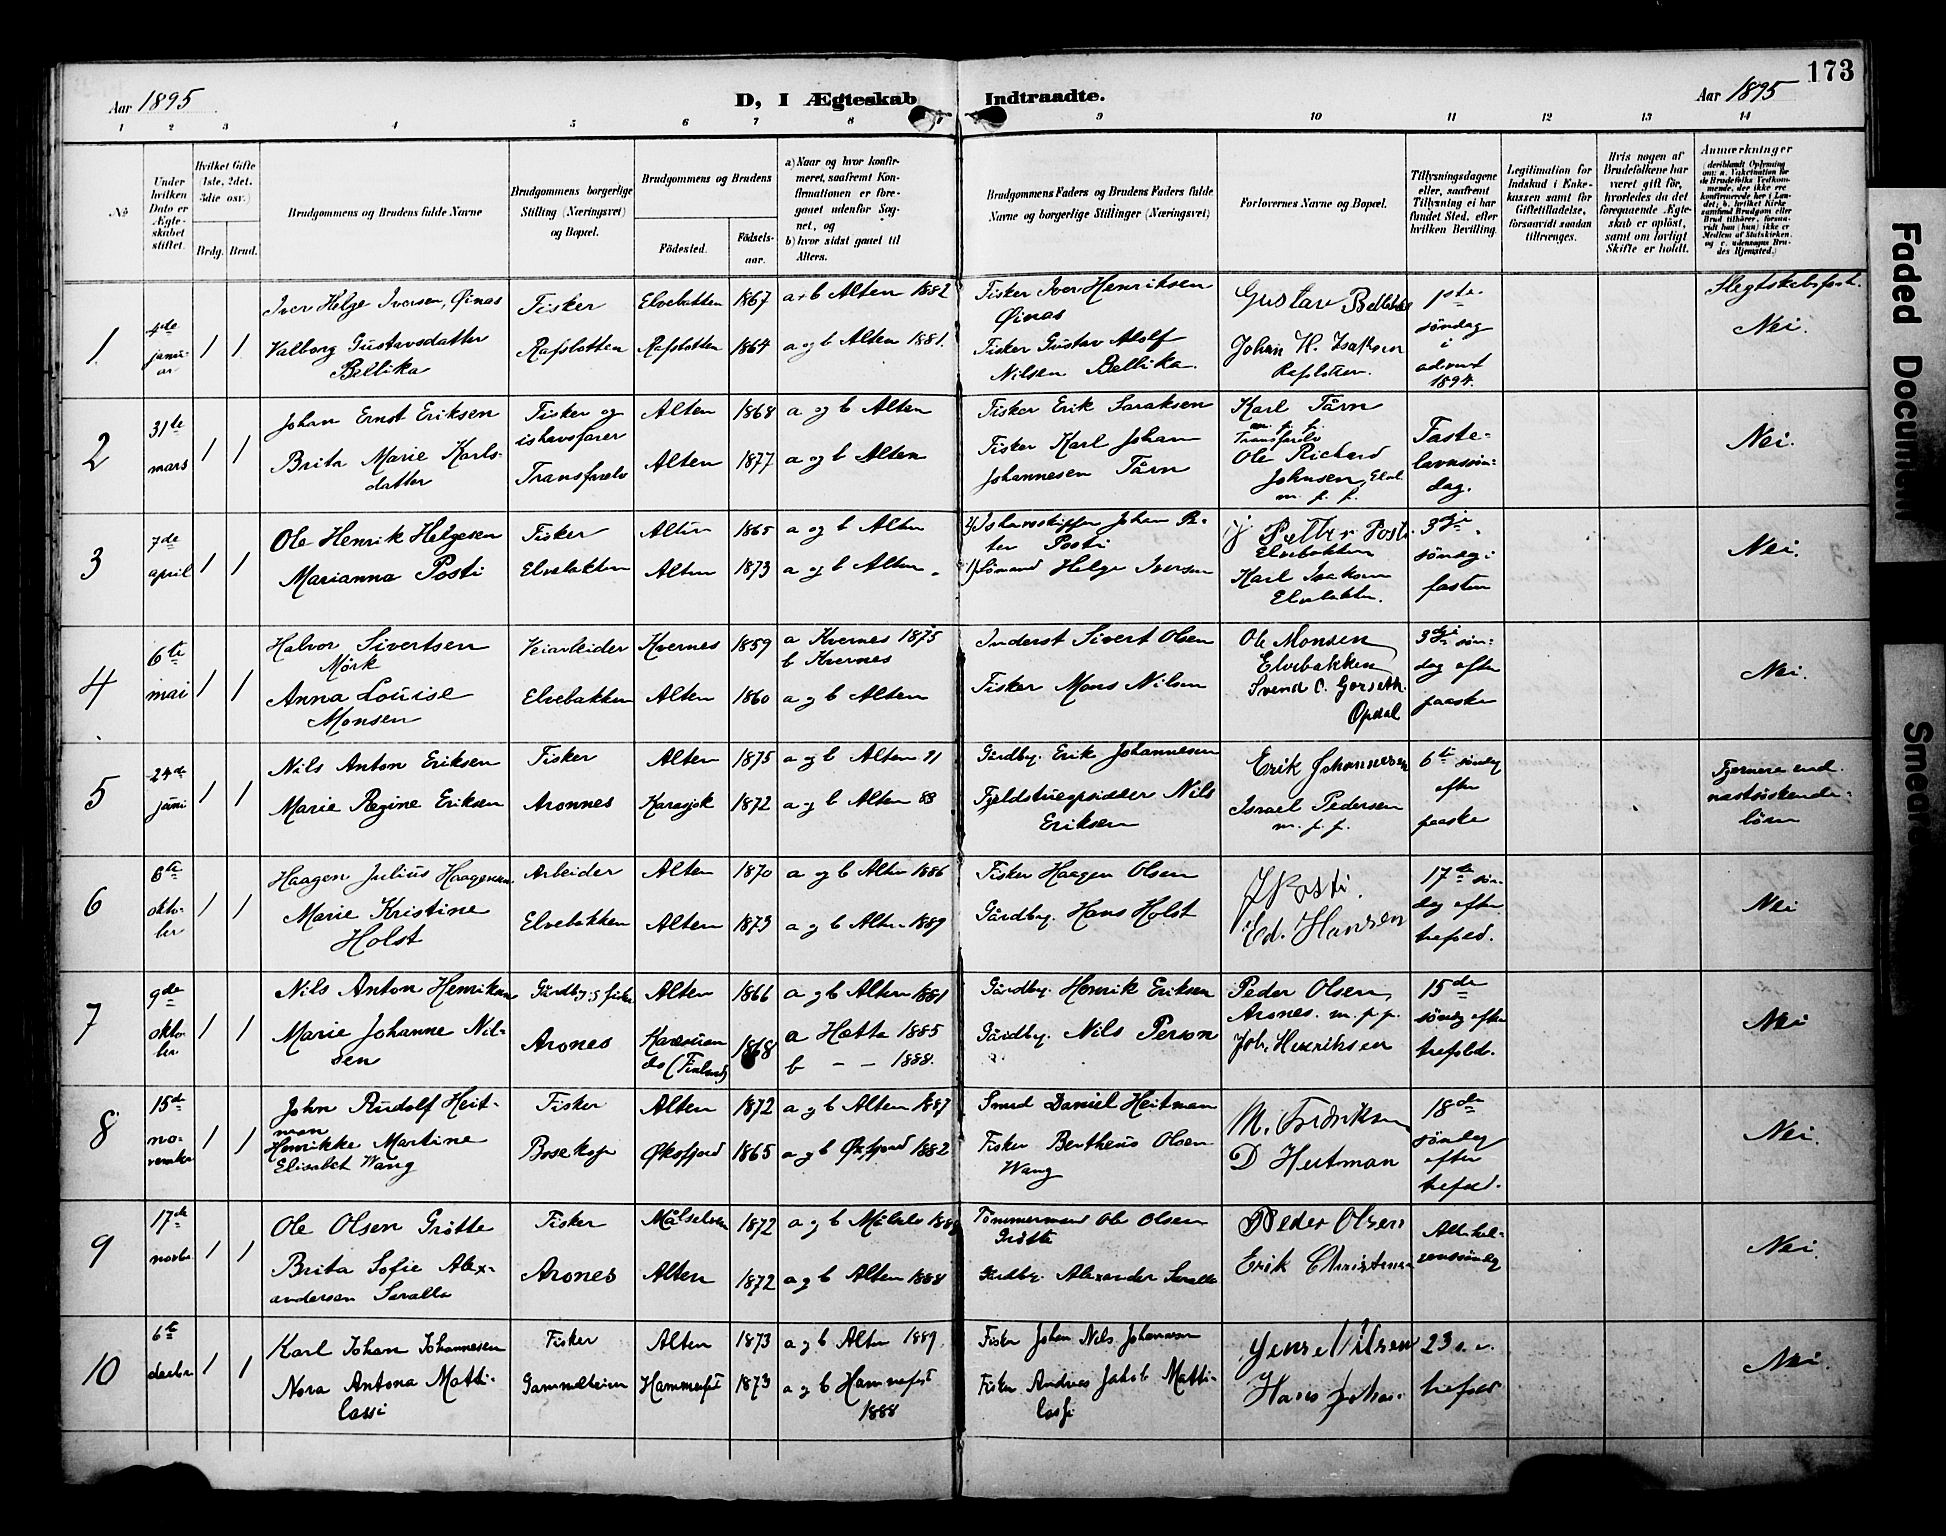 173
Aar 1895
D, I Ægteskab Indtraadte.
Aar 1895
1 2 3 4 5 6 7 8 9 10 11 12 13 14
No
Under hvilken Dato er Ægteskabet stiftet.
Hvilket Gifte (1ste, 2det, 3die osv.)
Brdg. Brud.
Brudgommens og Brudens fulde Navne
Brudgommens borgerlige Stilling (Næringsvei) og Bopæl.
Brudgommens og Brudens
Fødested.
Fødsels-aar.
a) Naar og hvor konfirmeret, saafremt Konfirmationen er foregaaet udenfor Sognet, og
b) hvor sidst gaaet til Alters.
Brudgommens Faders og Brudens Faders fulde Navne og borgerlige Stillinger (Næringsvei)
Forlovernes Navne og Bopæl.
Tillysningsdagene eller, saafremt Tillysning ei har fundet Sted, efter hvilken Bevilling.
Legitimation for Indskud i Enkekassen samt for Giftetilladelse, forsaavidt saadan tiltrænges.
Hvis nogen af Brudefolkene har været gift før, hvorledes da det foregaaende Ægteskab er opløst, samt om lovligt Skifte er holdt.
Anmærkninger
1
4de januar
1 1
Iver Helge Iversen, Øinas
Valborg Gustavsdatter
Bellika
Fisker
Rafsbotten
Elvebakken
Rafsbotten
1867
1864
a+b Alten 1882
a og b Alten 1881.
Fisker Iver Henriksen
Øinas
Fisker Gustav Adolf
Nilsen Bellika.
Gustav
Johan H. Isaksen
1ste
søndag
i
advent
1894.
Slegtskabsforh.
Nei.
2
31te
mars
1 1
Johan Ernst Eriksen
Brita Marie Karls-
datter
Fisker og
ishavsfarer
Transfarelv
Alten
Alten
1868
1877
a og b Alten
a og b Alten
Fisker Erik Isaksen
Fisker Karl Johan
Johannesen Tårn
Karl Tårn
m. p. p.
Transfarelv
Ole Richard
Johnsen, Elvb.
m. p. p.
Faste-
lavnssøn-
dag.
Nei.
3
7de
april
1 1
Ole Henrik Helgesen
Marianna Posti
Fisker
Elvebakken
Alten
Alten
1865
1873
a og b Alten
a og b Alten
2) Ishavsskipper Johan Pe-
ter Posti
1) Sømand Helge Iversen
Petter Posti
Elvebakken
Karl Isaksen
Elvebakken.
3die
søndag i
fasten
Nei.
4
6te
mai
1 1
Halvor Sivertsen
Mørk
Anna Louise
Monsen
Veiarbeider
Elvebakken
Kvernes
Alten
1859
1860
a Kvernes 1875
b Kvernes
a og b Alten
Inderst Sivert Olsen
Fisker Mons Nilsen
Ole Monsen
Elvebakken
Svend O. Gorseth.
Opdal
3die søn-
dag efter
paaske
Nei.
5
24de
juni
1 1
Nils Anton Eriksen
Marie Regine Eriksen
Fisker
Aronnes
Alten
Karasjok
1875
1872
a og b Alten 91
a og b Alten 88
Gårdbr. Erik Johannesen
Fjeldstueopsidder Nils
Eriksen
Erik Johannesen
Israel Pedersen
m. p. p.
6te søndag
efter
paaske
Fjernere end
næstsøskende-
børn
6
6te
okto-
ber
1 1
Haagen Julius Haagensen
Marie Kristine
Holst
Arbeider
Elvebakken
Alten
Alten
1870
1873
a og b Alten 1886
a og b Alten 1889
Fisker Haagen Olsen
Gårdbr. Hans Holst
J Posti.
Ed. Hansen
17de søn-
dag efter
trefold.
Nei
7
9de
okto-
ber
1 1
Nils Anton Henriksen
Marie Johanne Nil-
sen
Gårdbr. og fisker
Arones
Alten
Karesuan
do (Finland)
1866
1868
a og b Alten 1881
a Hætta 1885
b — — 1888.
Gårdbr. Henrik Eriksen
Gårdbr. Nils Person
Peder Olsen,
Arones. m. p. p.
Joh. Henriksen
15de
søndag efter
trefold.
Nei
8
15de
no-
vember
1 1
John Rudolf Heit-
man
Henrikke Martine
Elisabet Wang
Fisker
Bosekop
Alten
Øksfjord
1872
1865
a og b Alten 1887
a og b Øksfjord 1882
Smed Daniel Heitman
Fisker Bertheus Olsen
Wang
M. Fredriksen
D Heitman
18de
søndag
efter
trefold.
Nei.
9
17de
novbr
1 1
Ole Olsen Grøtte
Brita Sofie Alex-
andersen Saralla
Fisker
Arones
Målselven
Alten
1872
1872
a og b Målselv
a og b Alten 1888
Tømmermand Ole Olsen
Grøtte
Gårdbr. Alexander Saralla
Peder Olsen
Erik Christensen
Allehel-
genssøndag
Nei.
10
6te
decbr
1 1
Karl Johan Johannesen
Nora Antona Matti-
lassi
Fisker
Gammelheim
Alten
Hammerfest
1873
1873
a og b Alten 1889.
a og b Hammerfest
1888
Fisker Johan Nils Johannesen
Fisker Andreas Jakob Matti-
lassi
Jens Nilsen
Hans Johan
23 s. e.
trefold.
Nei.
Faded Document
Smeared